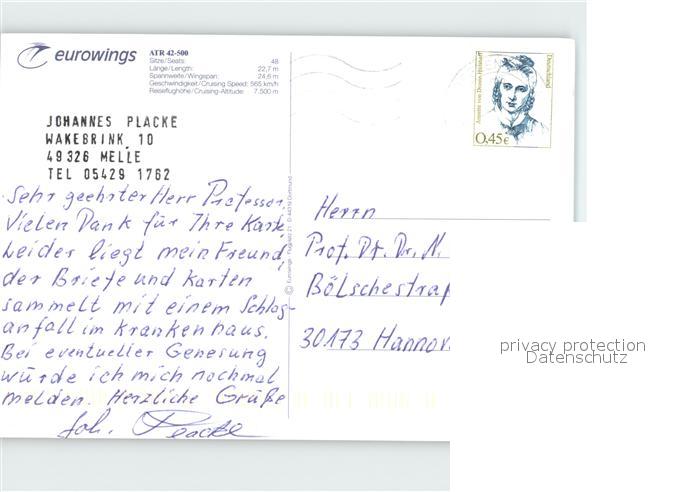 eurowings
ATR 42-500
Sitze/Seats: 48
Länge/Length: 22,7 m
Spannweite/Wingspan: 24,6 m
Geschwindigkeit/Cruising Speed: 565 km/h
Reiseflughöhe/Cruising-Altitude: 7.500 m
JOHANNES PLACKE
WAKEBRINK 10
49326 MELLE
TEL 05429 1762
Sehr geehrter Herr Professor,
Vielen Dank für Ihre Karte.
Leider liegt mein Freund,
der Briefe und Karten
sammelt mit einem Schlag-
anfall im Krankenhaus.
Bei eventueller Genesung
würde ich mich nochmal
melden. Herzliche Grüße
Joh. Placke
© Eurowings · Flugplatz 21 · D-44319 Dortmund
Annette von Droste-Hülshoff
Deutschland
0,45€
Herrn
Prof. Dr. Dr. N.
Bölschestraß
30173 Hannov
privacy protection
Datenschutz